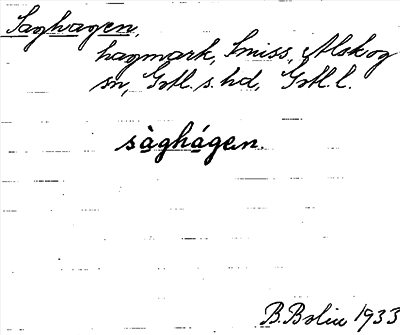 Saghagen,
hagmark, Smiss, Alskog
sn, Gotl. s. hd, Gotl. l.
sàghágen.
B. Bolin 1933